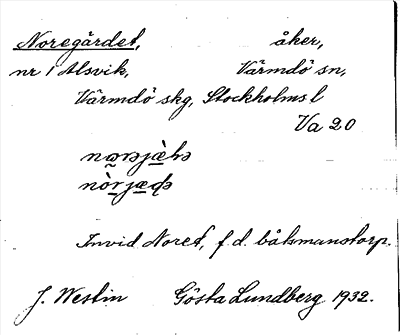 Noregärdet, åker,
nr 1 Alsvik, Värmdö sn,
Värmdö skg, Stockholms l
Va 20
Invid Noret, f.d. båtsmanstorp.
J. Westin Gösta Lundberg 1932.